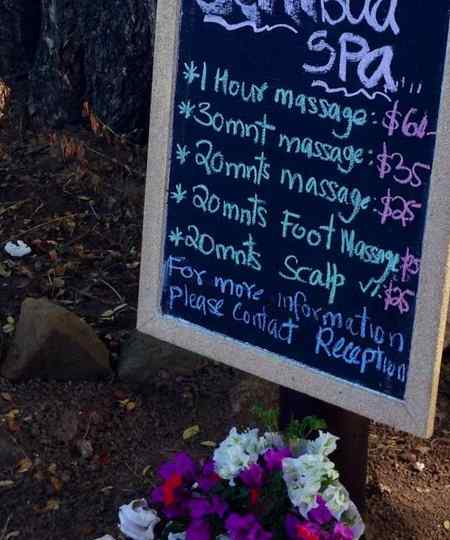 Spa
*1 Hour massage: $60
*30mnt massage: $35
*20mnts massage: $25
*20mnts Foot Massage
*20mnts Scalp $25
For more information
please Contact Reception